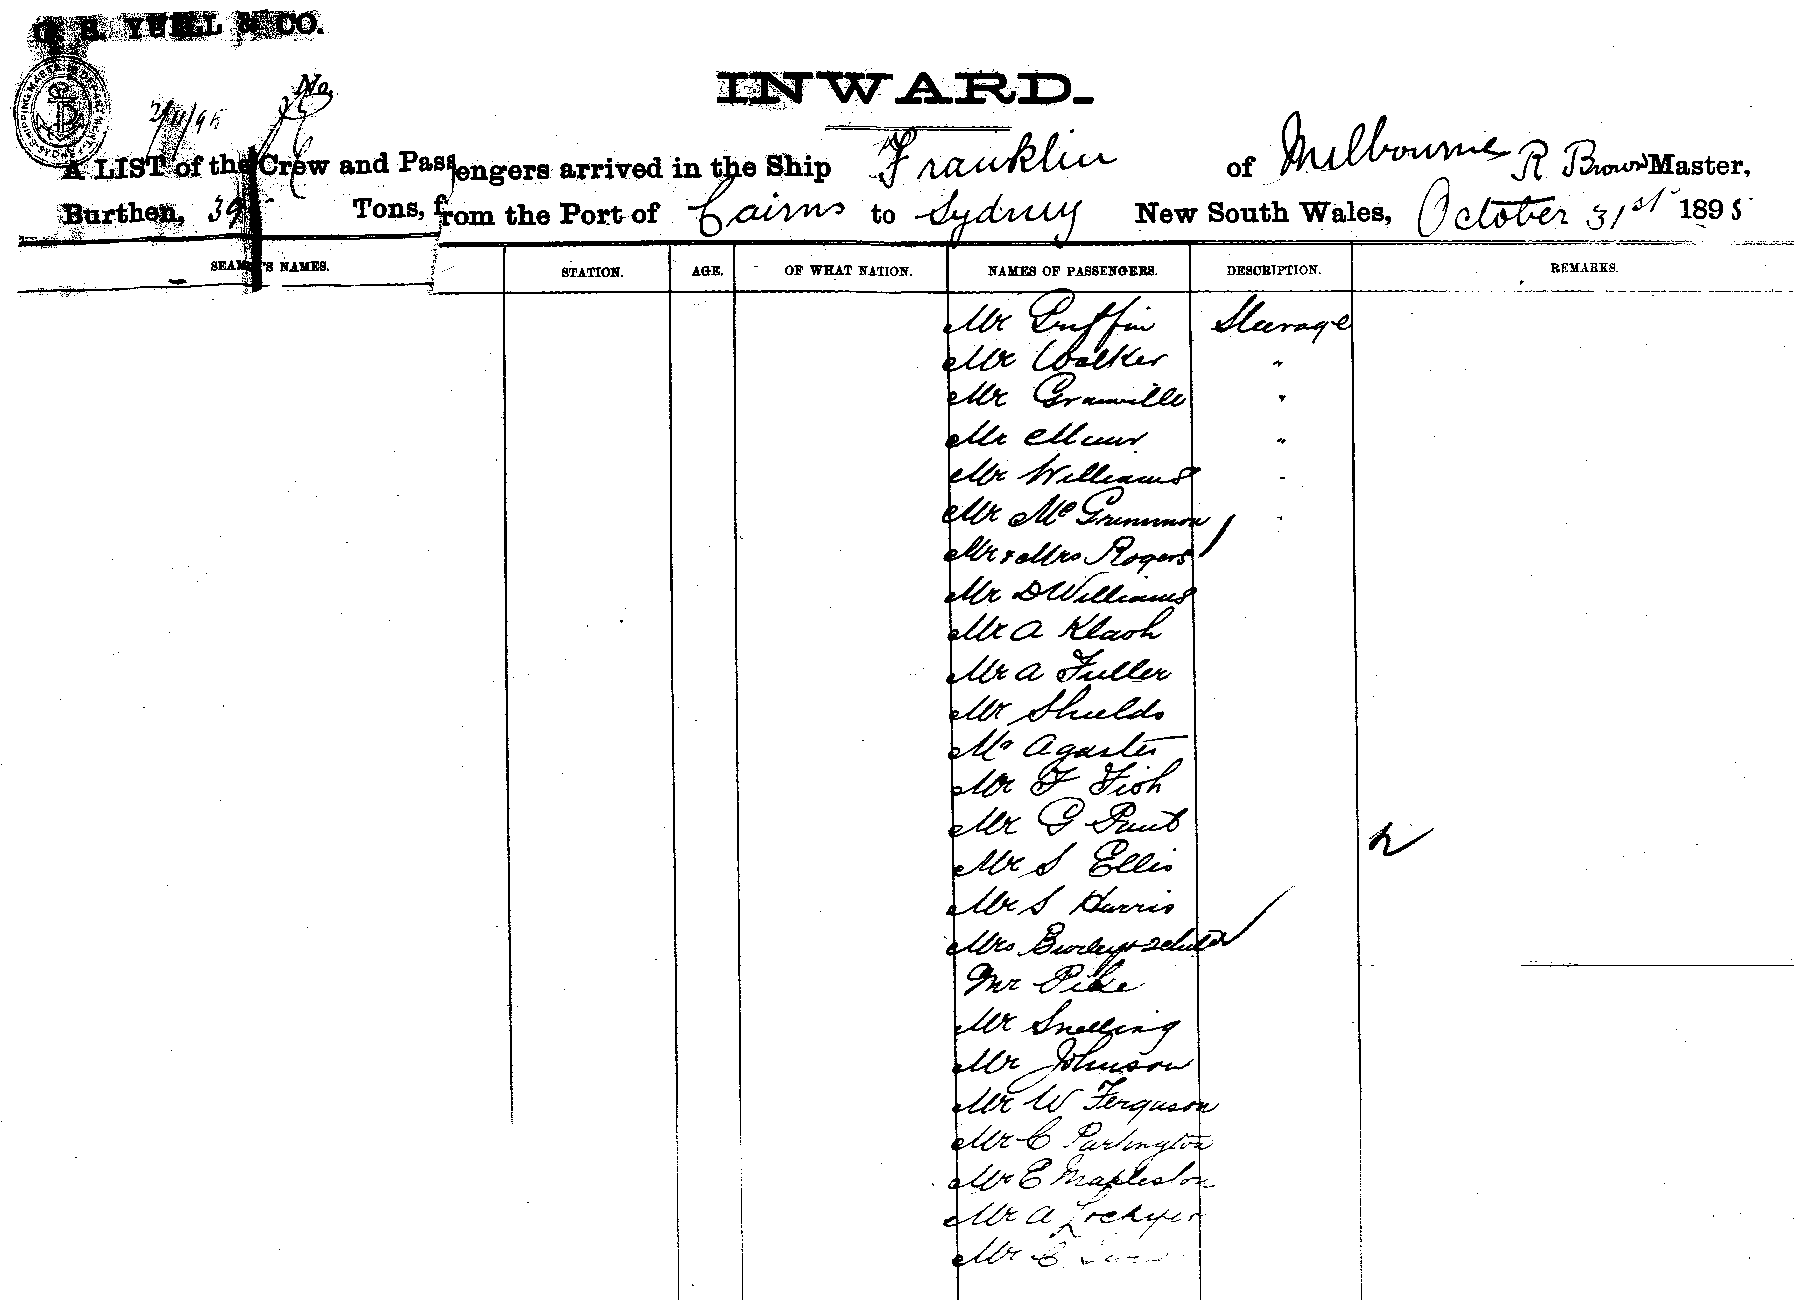 G. S. YUILL & CO.
INWARD.
2/11/95 No
A LIST of the Crew and Passengers arrived in the Ship Franklin of Melbourne R Brown Master,
Burthen, Tons, from the Port of Cairns to Sydney New South Wales, October 31st 1895
SEAMEN'S NAMES. STATION. AGE. OF WHAT NATION. NAMES OF PASSENGERS. DESCRIPTION. REMARKS.
Mr Griffin Steerage
Mr Walker "
Mr Granville "
Mr Muir "
Mr Williams "
Mr McGrimmon "
Mr & Mrs Rogers
Mr D Williams
Mr A Klaoh
Mr A Fuller
Mr Shields
Mr Agaster
Mr F Fish
Mr G
Mr S Ellis
Mr S Harris
Mrs Burley & 2 child
Mr Pike
Mr Snelling
Mr Johnson
Mr W Ferguson
Mr C Partington
Mr E Mapleston
Mr A Lockyer
Mr C